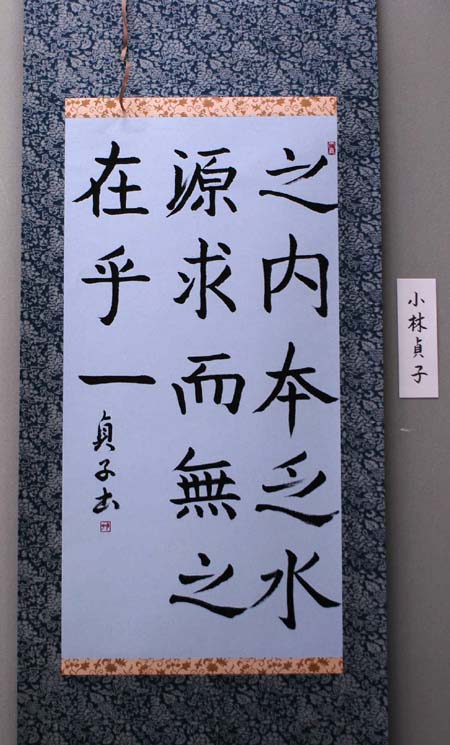 之内本乏水
源求而無之
在乎一
貞子書
小林貞子